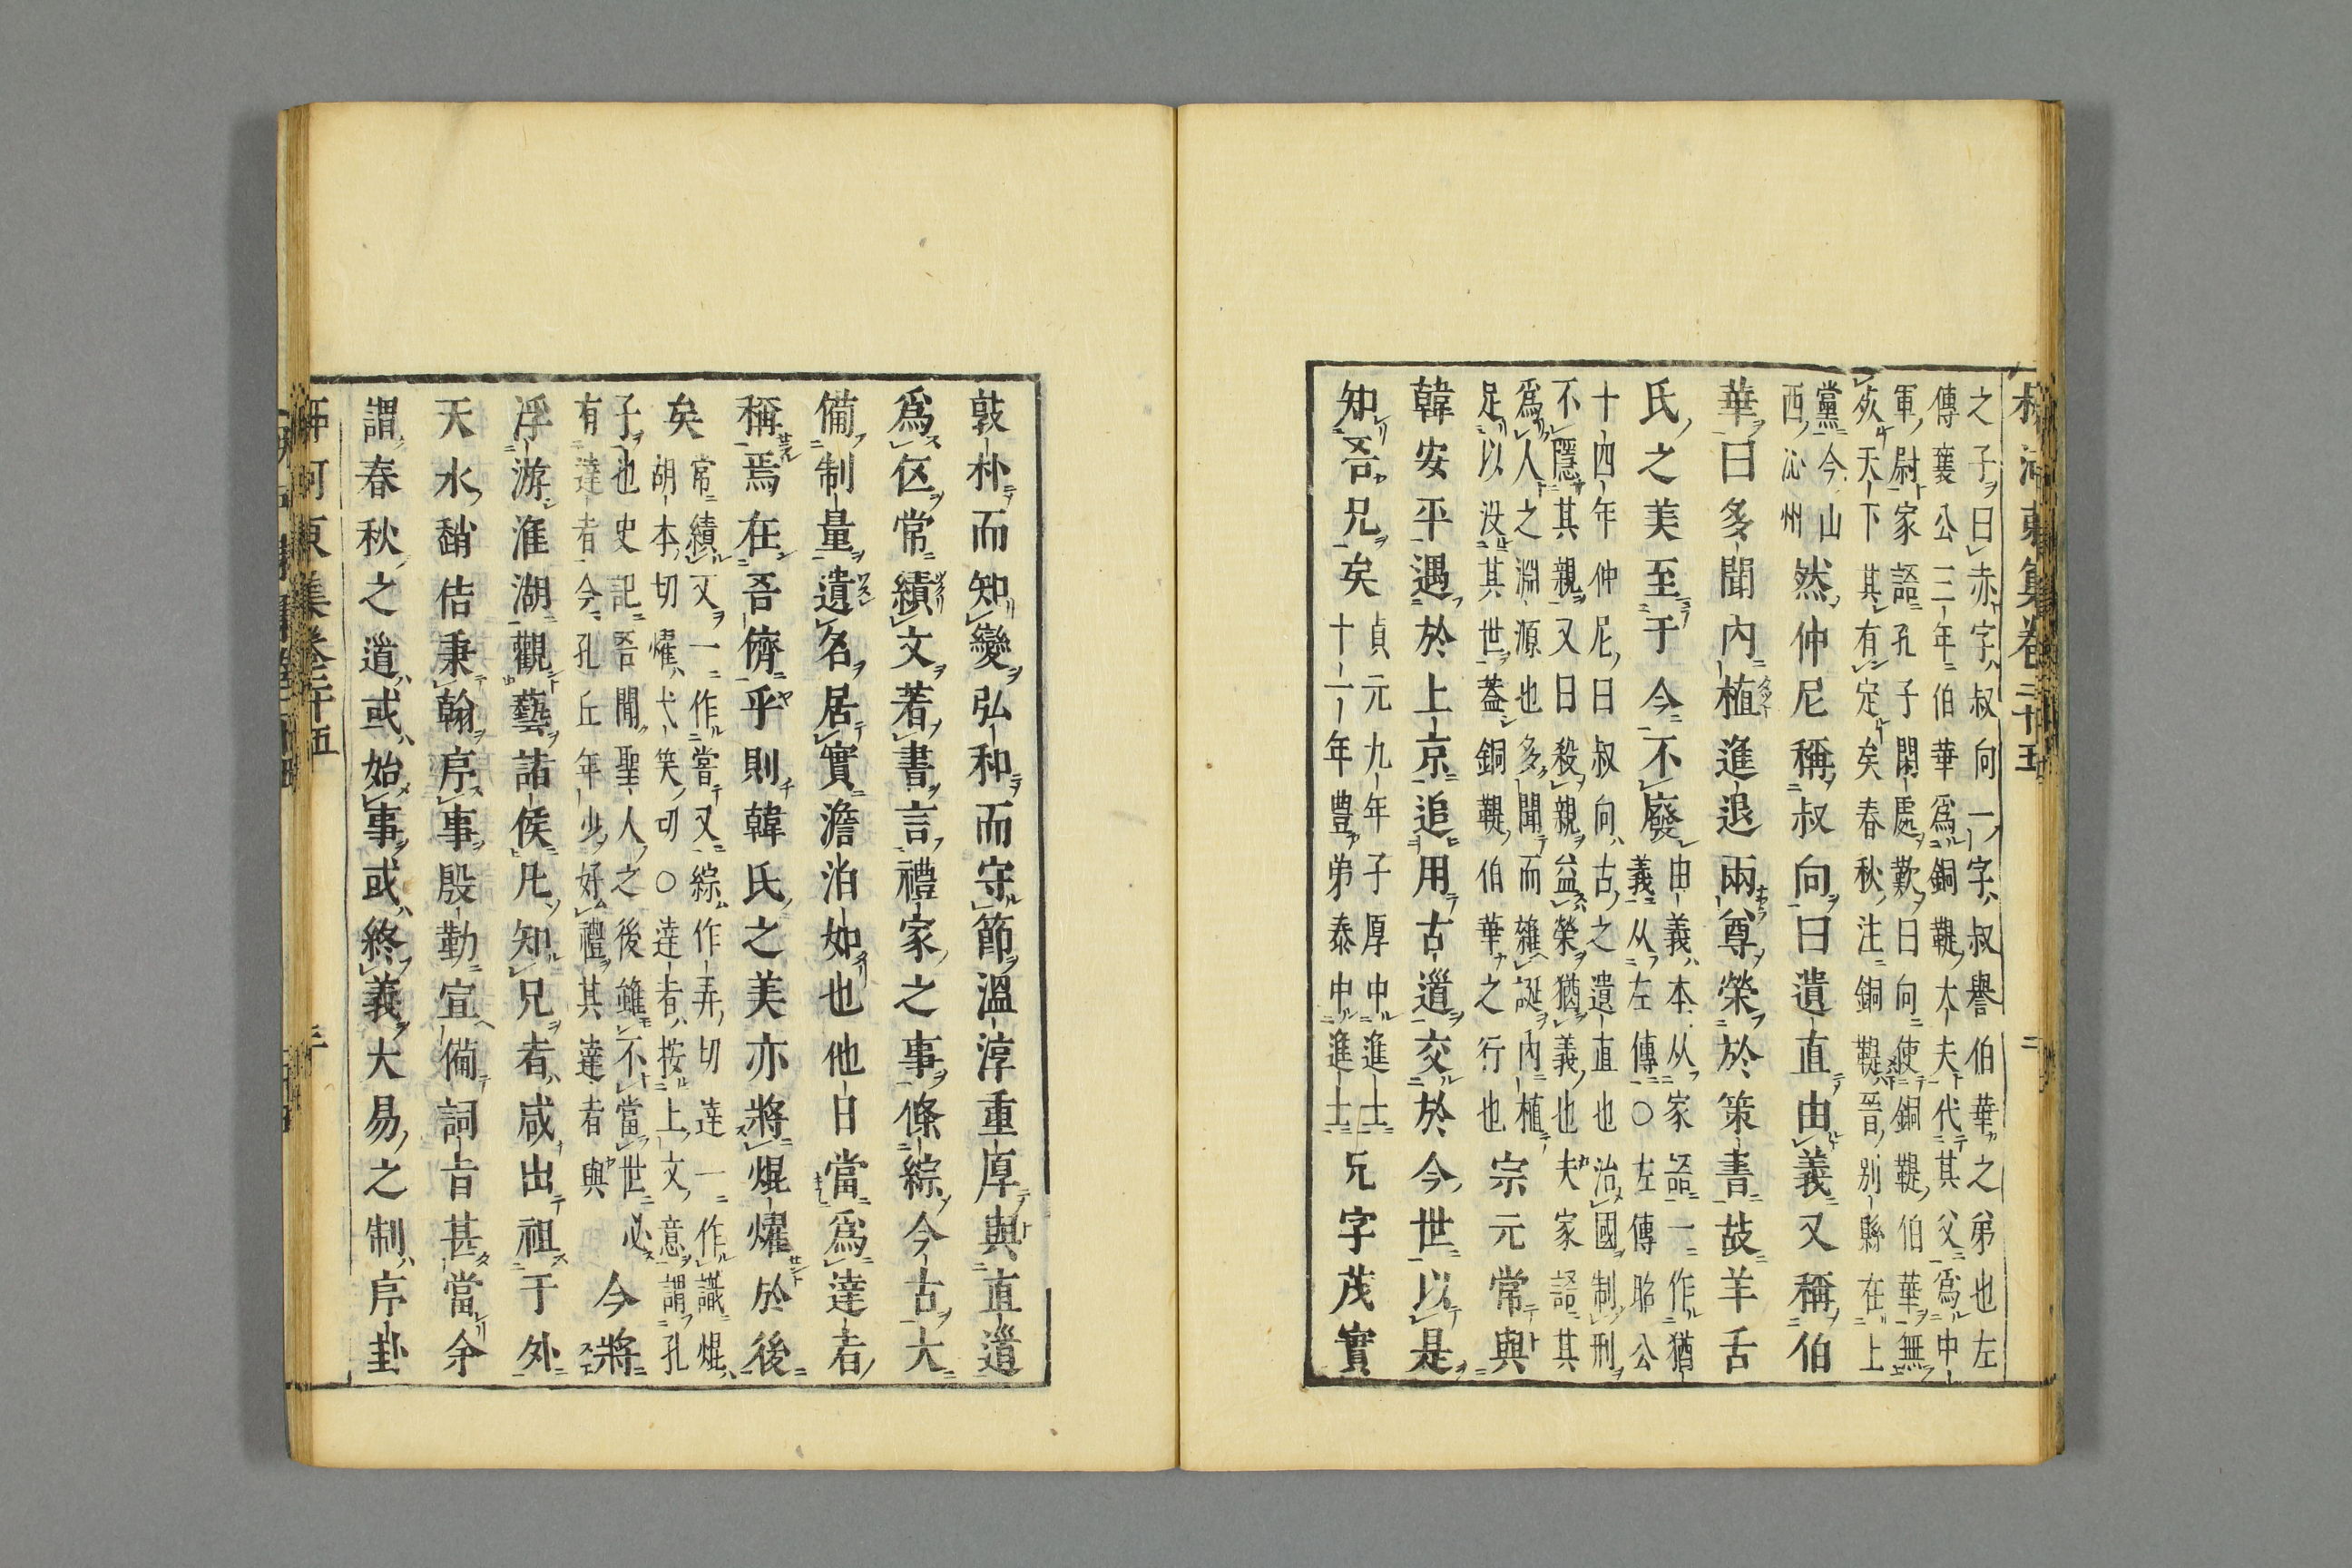 柳河東集卷二十五 二
之子曰赤字叔向一字叔譽伯華之弟也左
傳襄公三年伯華爲銅鞮大夫代其父爲中
軍尉家語孔子閑處歎曰向使銅鞮伯華無
死天下其有定矣春秋注銅鞮晉別縣在上
黨今山
西沁州
然仲尼稱叔向曰遺直由義又稱伯
華曰多聞內植進退兩尊榮於策書故羊舌
氏之美至于今不廢
由義本从家語一作猶
義从左傳○左傳昭公
十四年仲尼曰叔向古之遺直也治國制刑
不隱其親又曰殺親益榮猶義也夫家語其
爲人之淵源也多聞而雜誕內植
足以沒其世蓋銅鞮伯華之行也
宗元常與
韓安平遇於上京追用古道交於今世以是
知吾兄矣
貞元九年子厚中進士
十一年豊弟泰中進士
兄字茂實
敦朴而知變弘和而守節溫淳重厚與直道
爲伍常績文著書言禮家之事條綜今古大
備制量遺名居實澹泊如也他日當爲達者
稱焉在吾儕乎則韓氏之美亦將焜燿於後
矣
常績又一作嘗又綜作弄切達一作識焜
胡本切燿弋笑切○達者按上文意謂孔
子也史記吾聞聖人之後雖不當世必
有達者今孔丘年少好禮其達者與
今將
浮游淮湖觀藝諸侯凡知兄者咸出祖于外
天水𧹞佶秉翰序事殷勤宣備詞旨甚當余
謂春秋之道或始事或終義大易之制序卦
柳河東集卷二十五 三